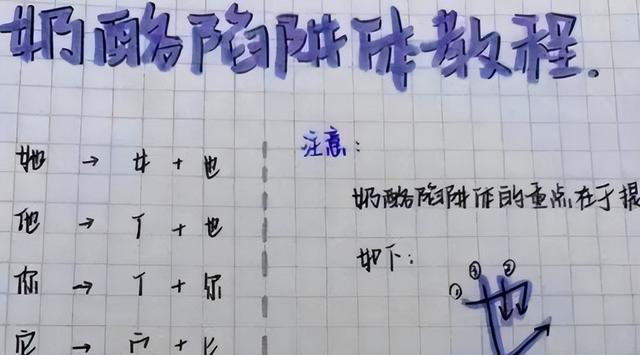 奶酪陷阱体教程.
她 → 女 + 也
他 → 亻 + 也
你 → 亻 + 尔
它 → 宀 + 匕
注意:
奶酪陷阱体的重点在于提
如下:
① ③ ②
也